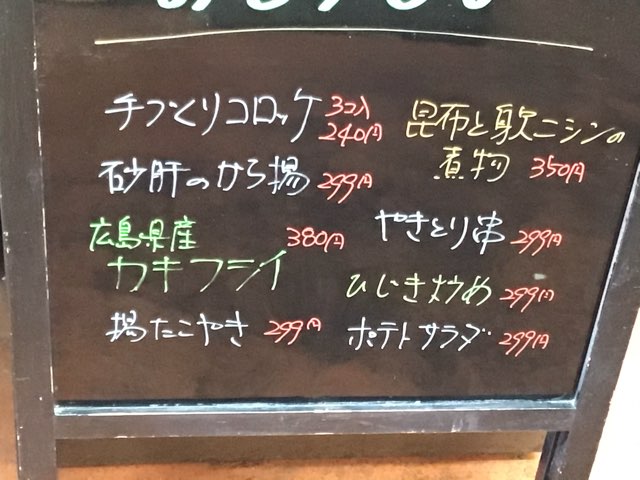 手づくりコロッケ 3コ入
240円
砂肝のから揚 299円
広島県産 380円
カキフライ
揚たこやき 299円
昆布と軟ニシンの
煮物 350円
やきとり串 299円
ひじき炒め 299円
ポテトサラダ 299円